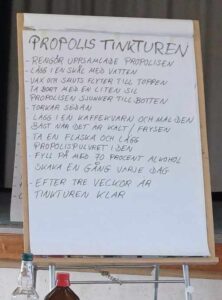 PROPOLIS TINKTUREN
- RENGÖR UPPSAMLADE PROPOLISEN
- LÄGG I EN SKÅL MED VATTEN
- VAX OCH SKUTS FLYTER TILL TOPPEN
TA BORT MED EN LITEN SIL
PROPOLISEN SJUNKER TILL BOTTEN
- TORKAR SEDAN
- LÄGG I EN KAFFEKVARN OCH MAL DEN
BÄST NÄR DET ÄR KALT/FRYSEN
- TA EN FLASKA OCH LÄGG
PROPOLISPULVRET I DEN
- FYLL PÅ MED 70 PROCENT ALKOHOL
- SKAKA EN GÅNG VARJE DAG
- EFTER TRE VECKOR ÄR
TINKTUREN KLAR